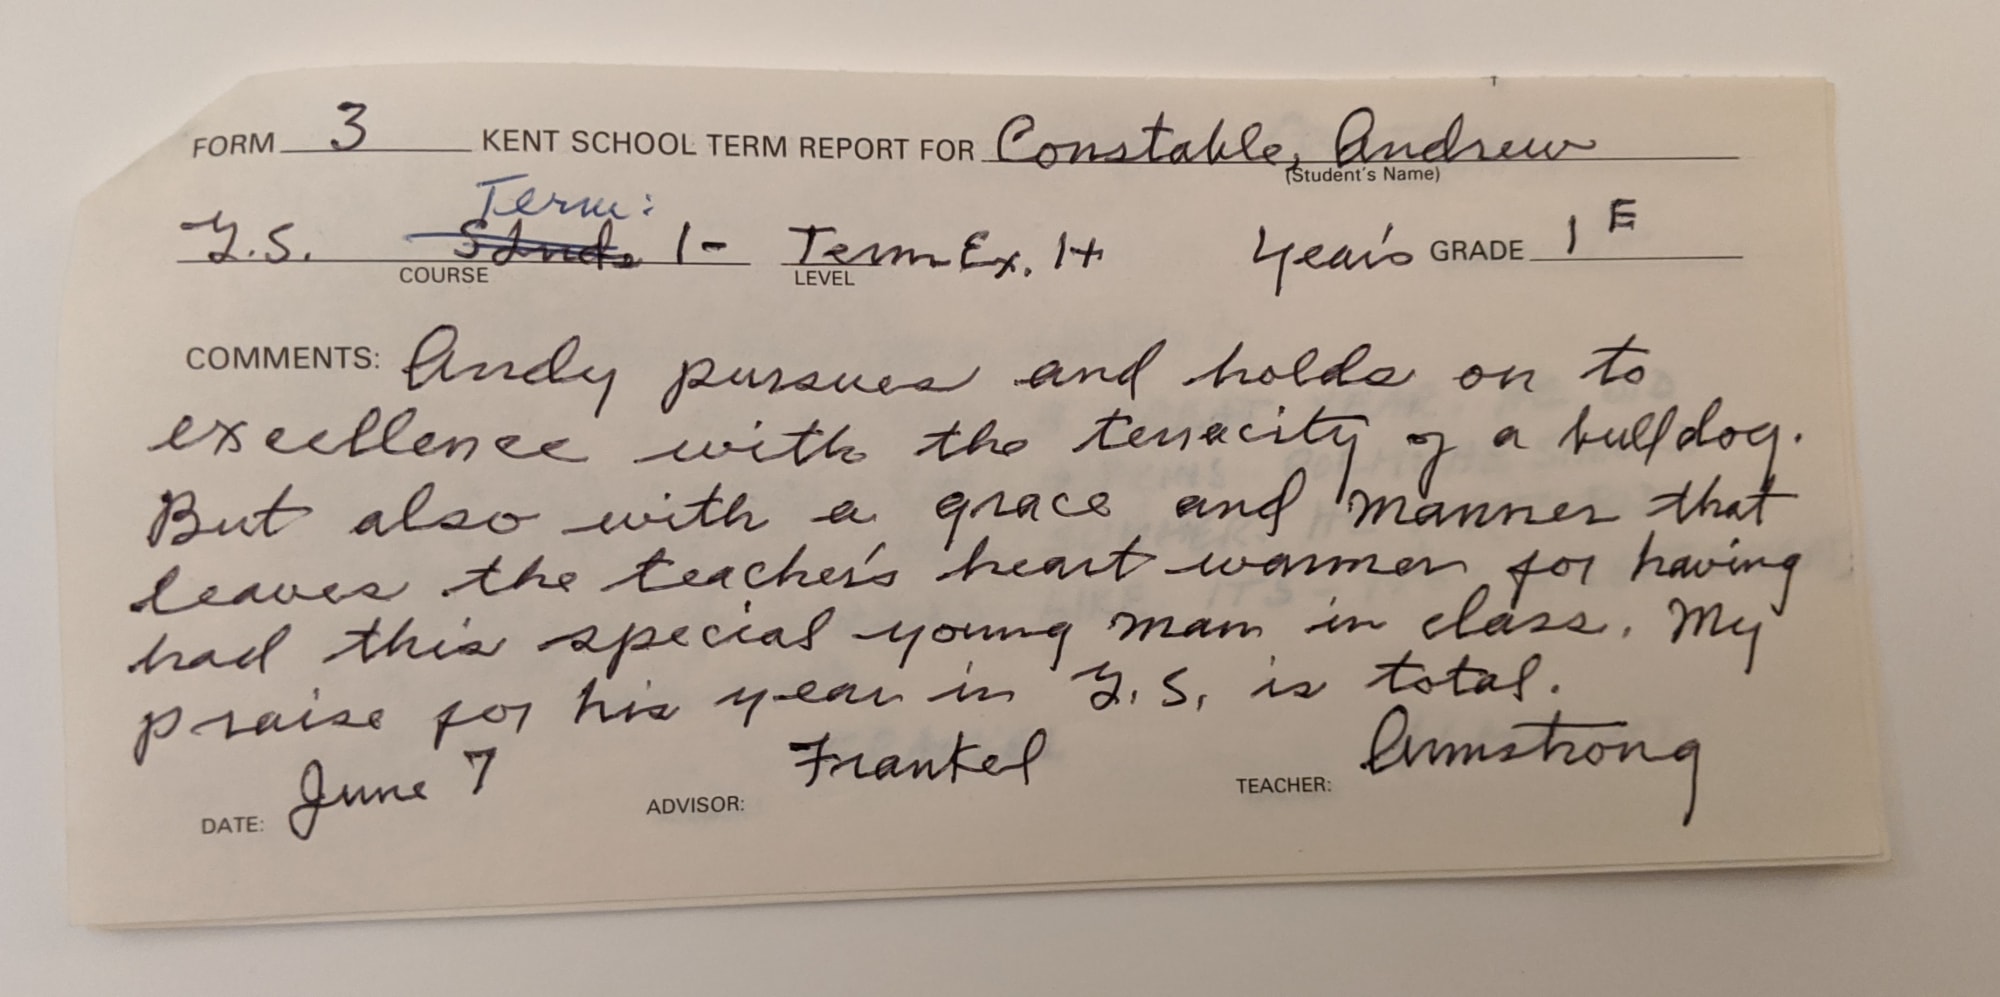 FORM 3 KENT SCHOOL TERM REPORT FOR Constable, Andrew
(Student's Name)
Term:
Y.S. 1- Term Ex. 1+ Year's GRADE 1 E
COURSE LEVEL
COMMENTS: Andy pursues and holds on to
excellence with the tenacity of a bulldog.
But also with a grace and manner that
leaves the teacher's heart warmer for having
had this special young man in class. My
praise for his year in Y.S. is total.
DATE: June 7 ADVISOR: Frankel TEACHER: Armstrong